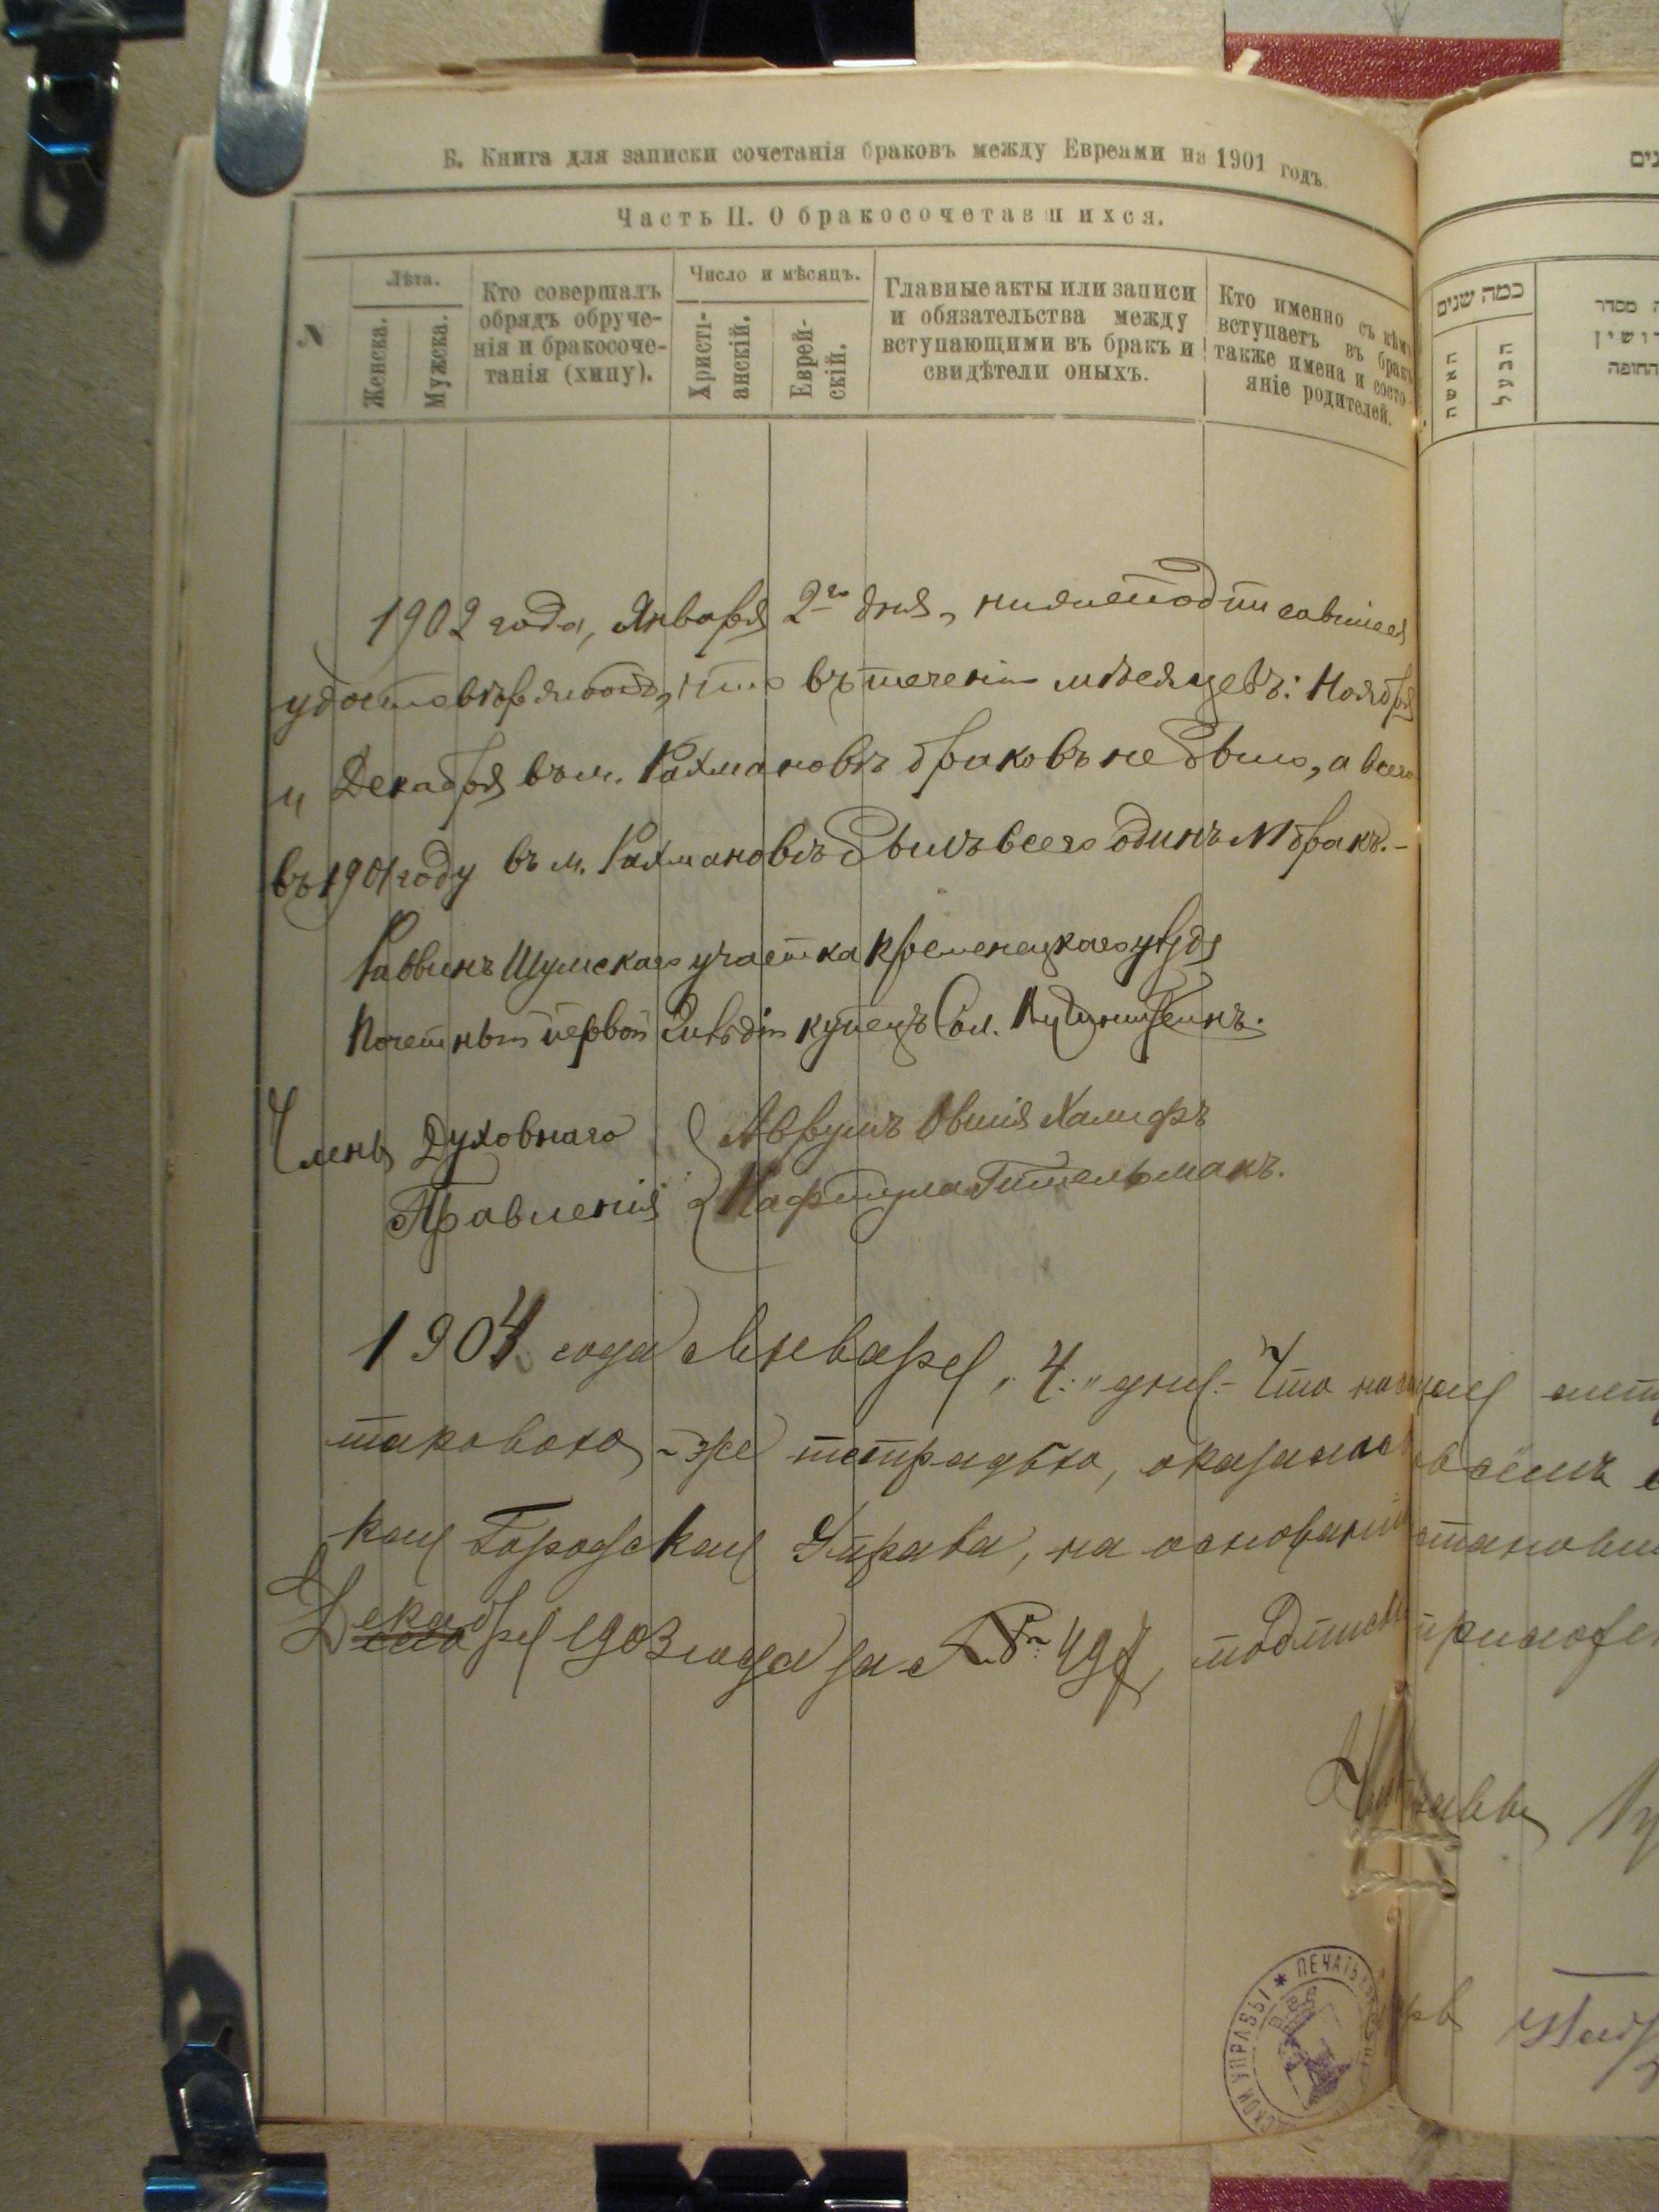 Б. Книга для записки сочетанія браковъ между Евреями на 1901 годъ.
Часть II. О бракосочетавшихся.
N
Лѣта.
Женска.
Мужска.
Кто совершалъ
обрядъ обруче-
нія и бракосоче-
танія (хипу).
Число и мѣсяцъ.
Христі-
анскій.
Еврей-
скій.
Главные акты или записи
и обязательства между
вступающими въ бракъ и
свидѣтели оныхъ.
Кто именно съ кѣмъ
вступаетъ въ бракъ
также имена и состо-
яніе родителей.
1902 года, Января 2го дня, нижеподписавшіеся
удостовѣряютъ, что въ теченіи мѣсяцевъ: Ноября
и Декабря въ м. Рахмановѣ браковъ не было, а всего
въ 1901 году въ м. Рахмановѣ былъ всего одинъ №1 бракъ.-
Раввинъ Шумскаго участка Кременецкаго уѣзда
Почетный первой Гильдіи купецъ Сол.
Члены Духовнаго
Правленія
Аврумъ Овшія Халифъ
Нафтула Гительманъ.
1904 года Января „4" дня. Что
таковою-же тетрадью, оказалось всемъ
кая Городская Управа, на основаніи
Декабря 1903 года за №
כמה שנים
האשה
הבעל
מסדר
החופה
ПЕЧАТЬ
СКОЙ УПРАВЫ